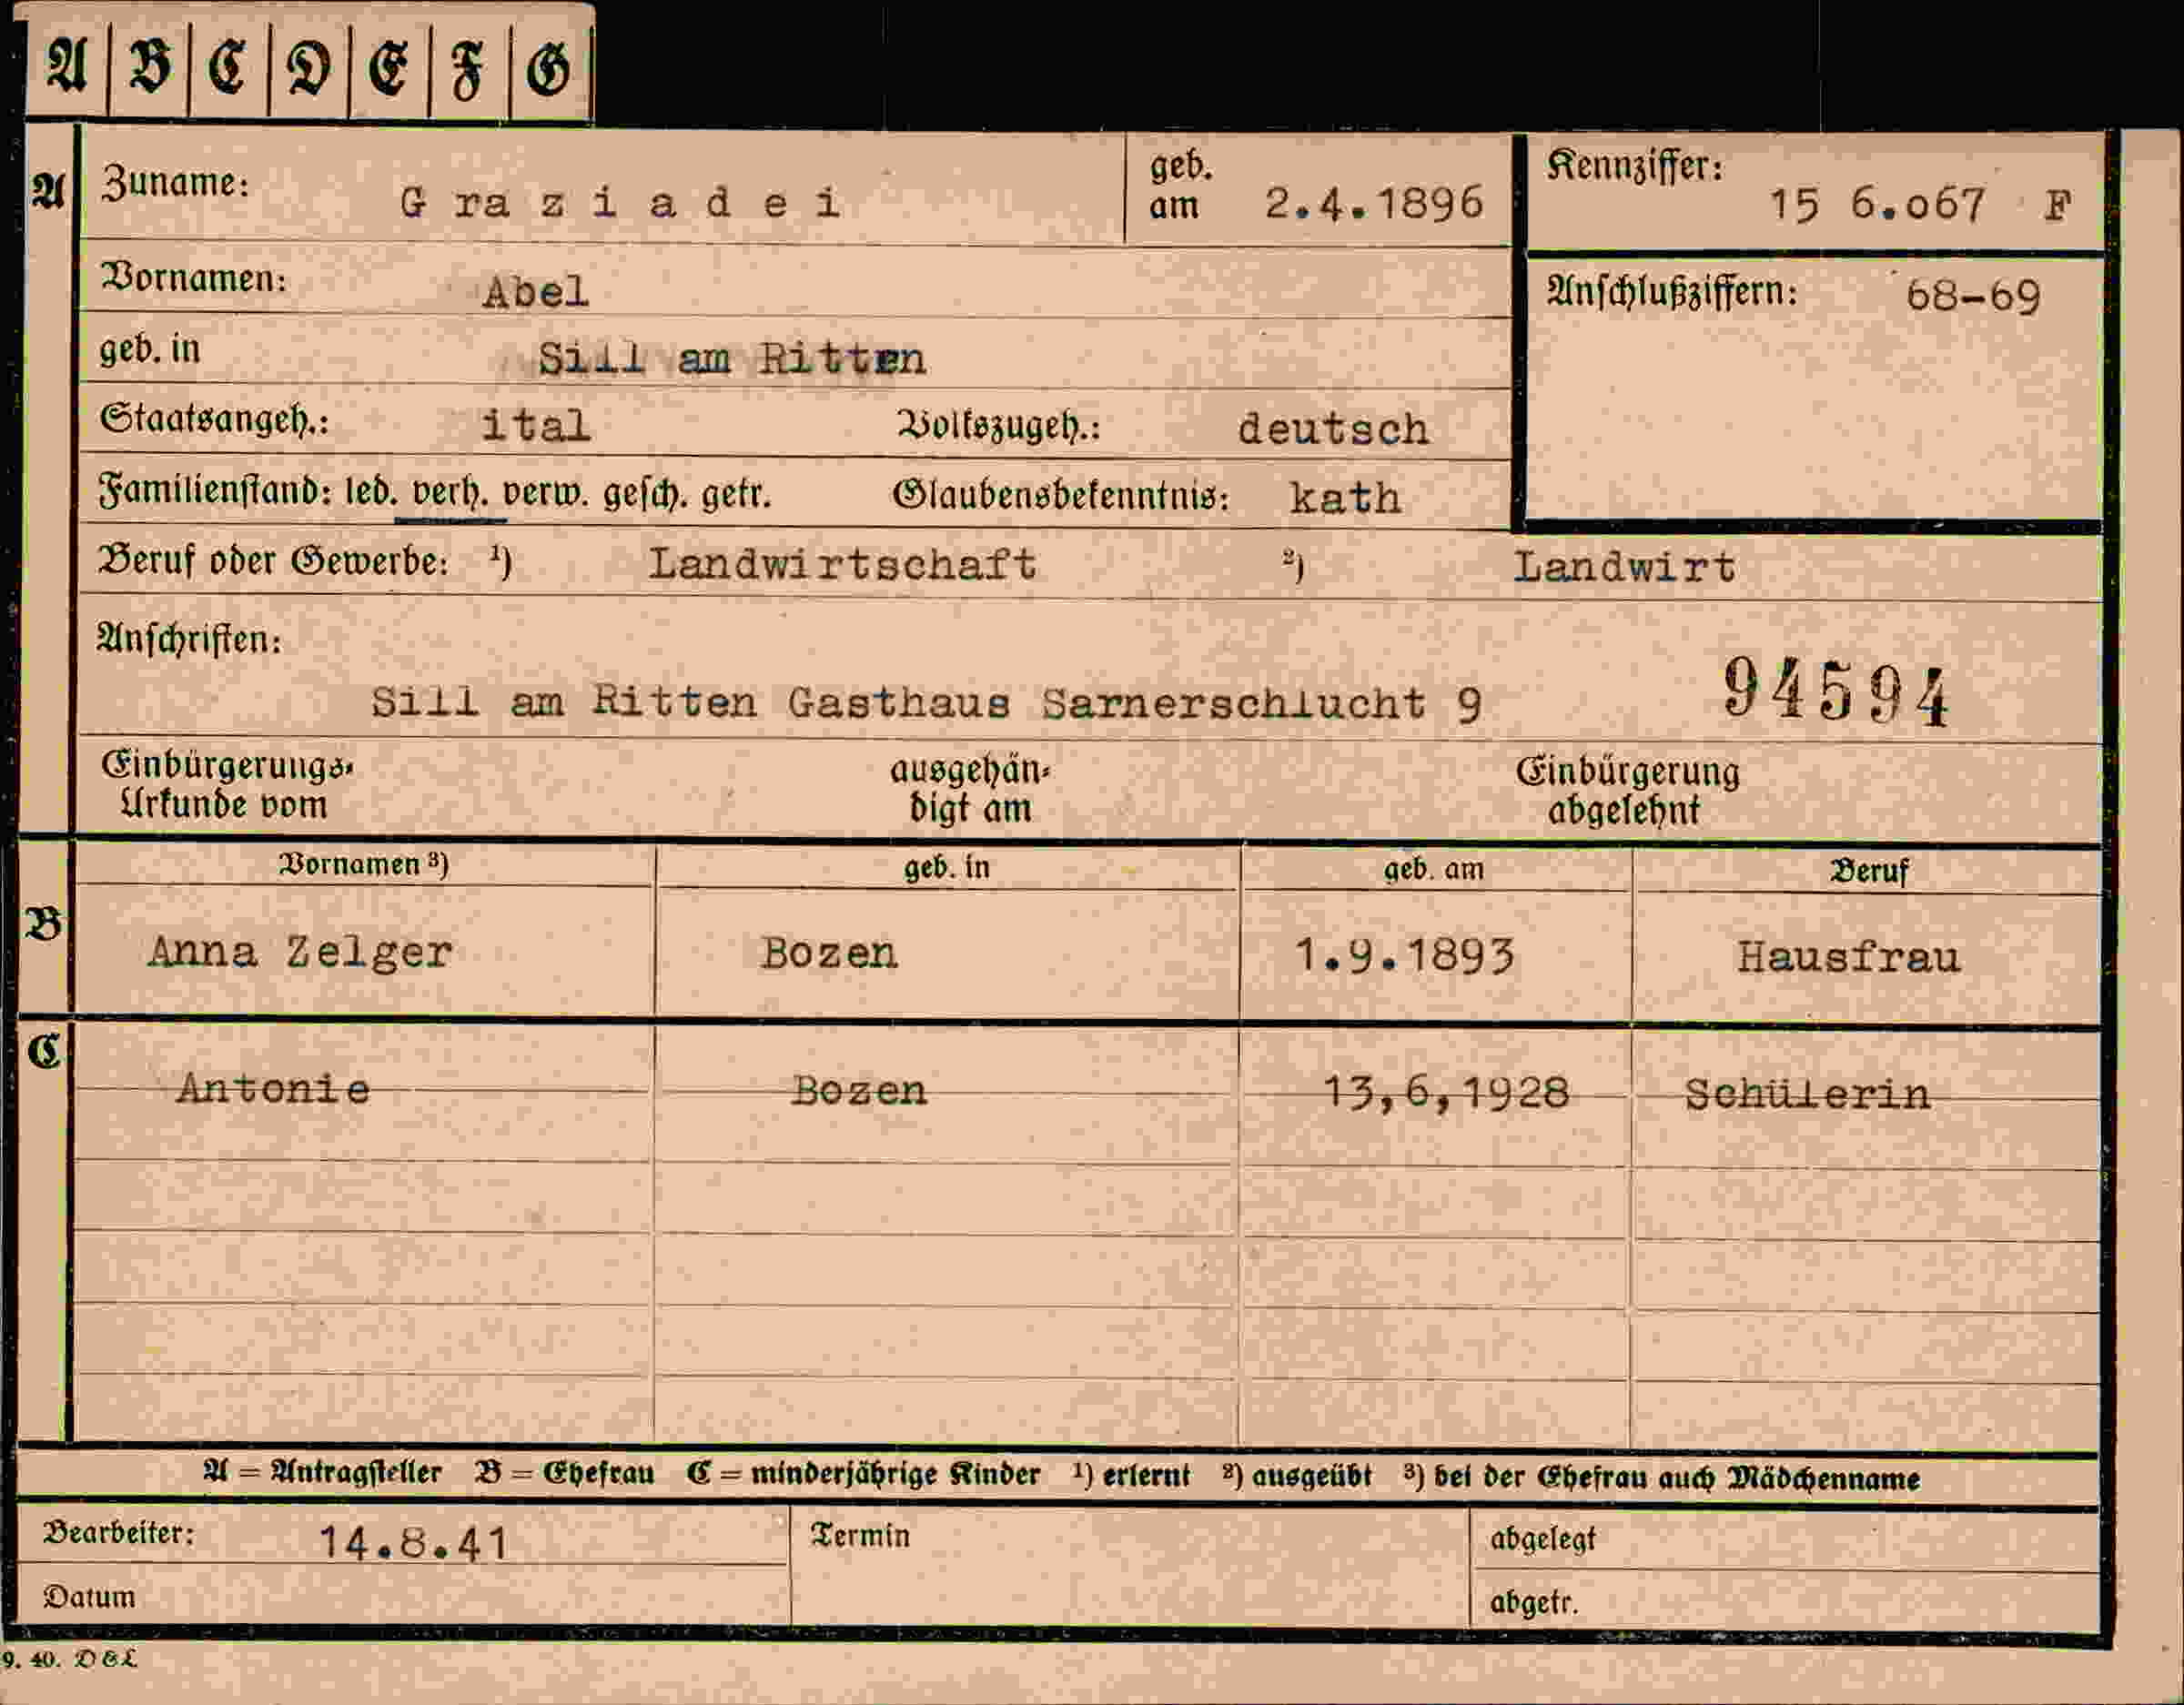 A B C D E F G
A Zuname: Graziadei geb. am 2.4.1896 Kennziffer: 15 6.o67 F
Vornamen: Abel Anschlußziffern: 68-69
geb. in Sill am Ritten
Staatsangeh.: ital Volkszugeh.: deutsch
Familienstand: led. verh. verw. gesch. getr. Glaubensbekenntnis: kath
Beruf oder Gewerbe: ¹) Landwirtschaft ²) Landwirt
Anschriften:
Sill am Ritten Gasthaus Sarnerschlucht 9 94594
Einbürgerungs- ausgehän- Einbürgerung
Urkunde vom digt am abgelehnt
Vornamen ³) geb. in geb. am Beruf
B Anna Zelger Bozen 1.9.1893 Hausfrau
C Antonie Bozen 13,6,1928 Schülerin
A = Antragsteller B = Ehefrau C = minderjährige Kinder ¹) erlernt ²) ausgeübt ³) bei der Ehefrau auch Mädchenname
Bearbeiter: 14.8.41 Termin abgelegt
Datum abgetr.
9. 40. D & L